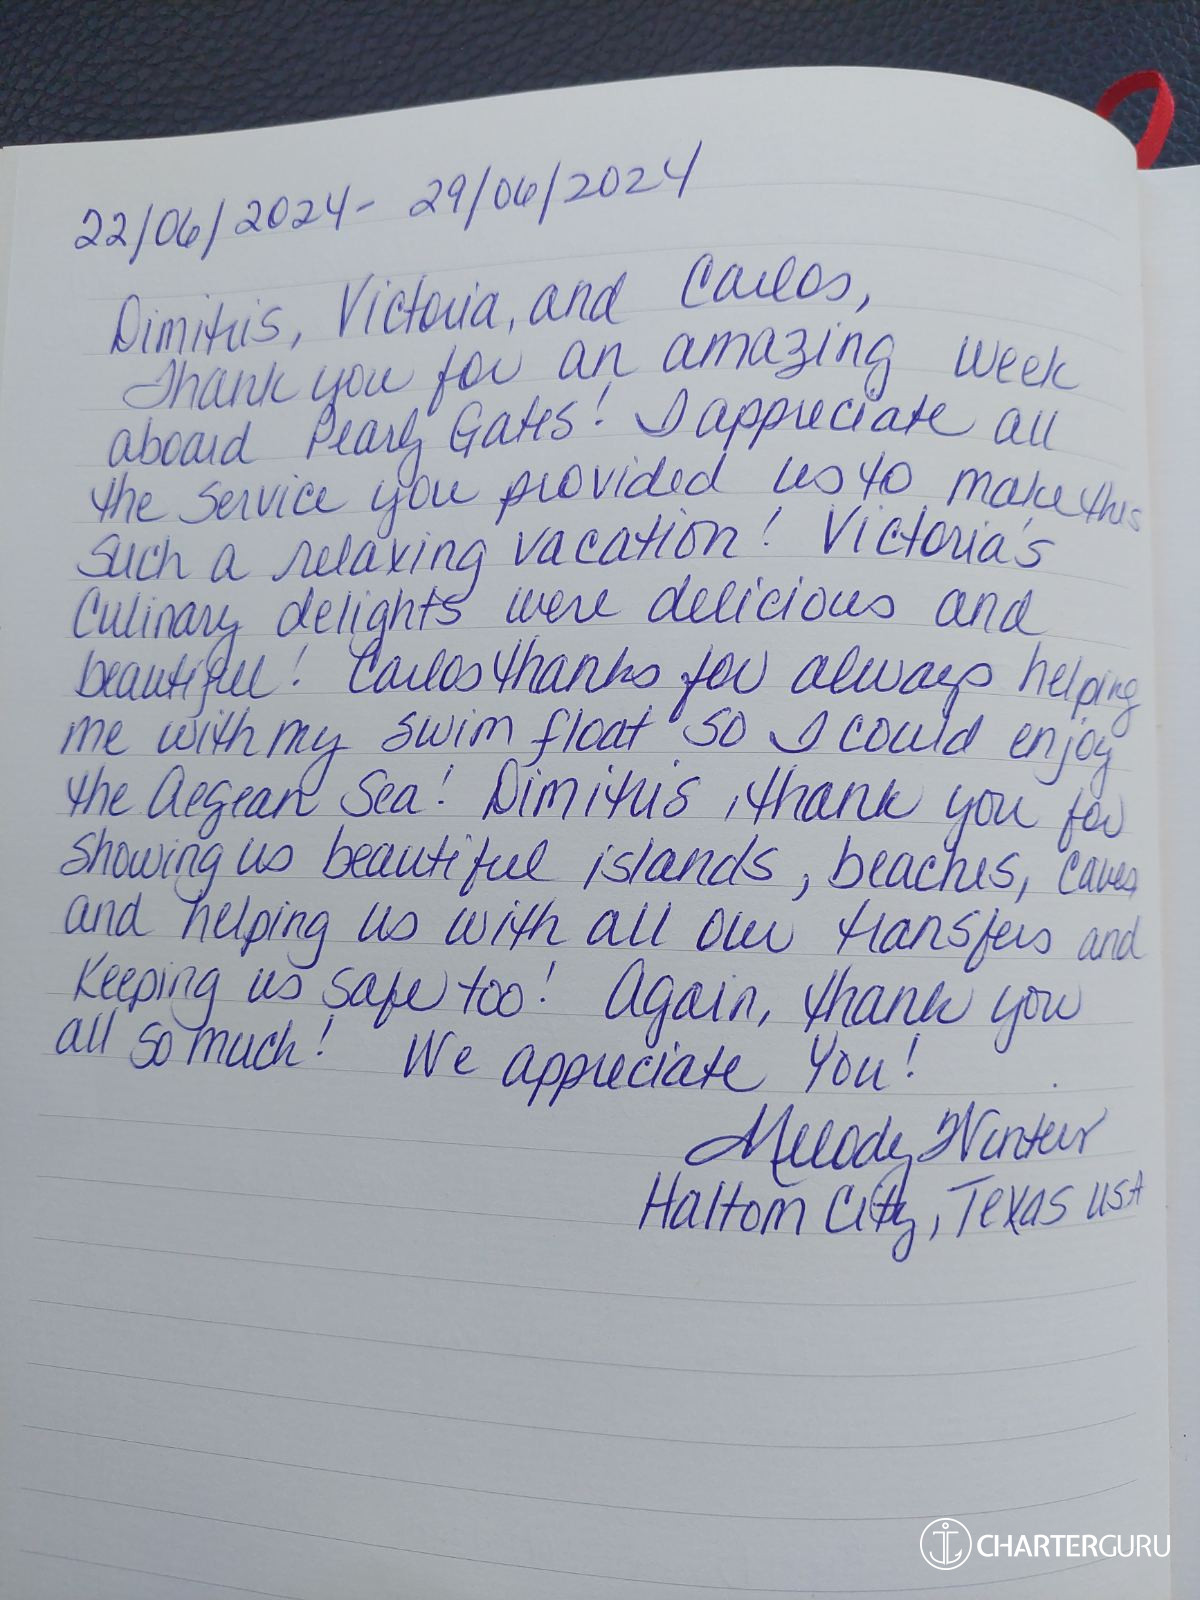 22/06/2024 - 29/06/2024
Dimitris, Victoria, and Carlos,
Thank you for an amazing week
aboard Pearly Gates! I appreciate all
the service you provided us to make this
such a relaxing vacation! Victoria's
culinary delights were delicious and
beautiful! Carlos thanks for always helping
me with my swim float so I could enjoy
the Aegean Sea! Dimitris, thank you for
showing us beautiful islands, beaches, caves
and helping us with all our transfers and
keeping us safe too! Again, thank you
all so much! We appreciate You!
Melody Winter
Haltom City, Texas USA
CHARTERGURU